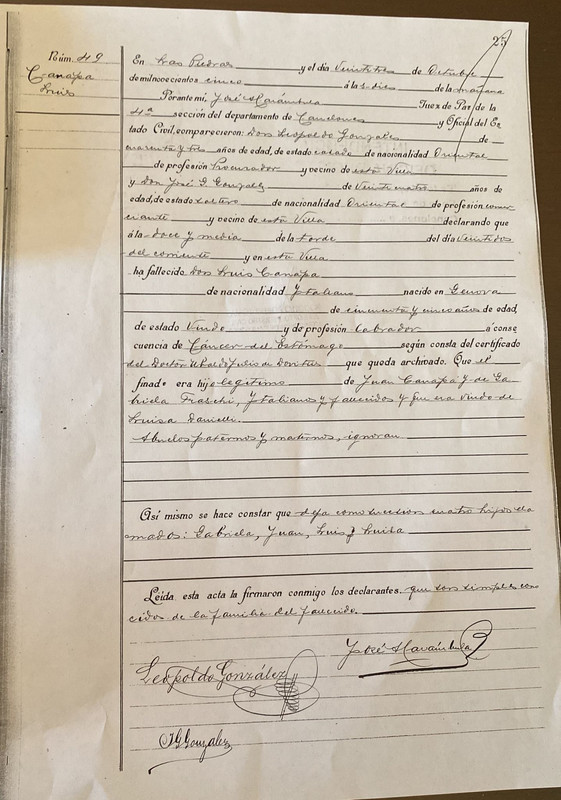 25
Núm. 49
Canapa
Luis
En Las Piedras y el día Veintitres de Octubre
de mil novecientos cinco á las diez de la mañana
Por ante mí, José Juez de Paz de la
4ª sección del departamento de Canelones y Oficial del Es-
tado Civil, comparecieron: Don Leopoldo Gonzales de
cuarenta y tres años de edad, de estado casado de nacionalidad Oriental
de profesión Procurador y vecino de esta Villa
y Don José G. Gonzalez de Veinticuatro años de
edad, de estado soltero de nacionalidad Oriental de profesión comer
ciante y vecino de esta Villa declarando que
á la doce y media de la tarde del día Veintidos
del corriente y en esta Villa
ha fallecido Don Luis Canapa
de nacionalidad Ytaliano nacido en Genova
de cincuenta y cinco años de edad,
de estado Viudo y de profesión Labrador a conse
cuencia de Cáncer del Estómago según consta del certificado
del Doctor Ubaldo que queda archivado. Que el
finado era hijo legitimo de Juan Canapa y de Ga-
briela Fraschi, Ytalianos y fallecidos y que era viudo de
Luisa Danielli.
Abuelos paternos y maternos, ignoran
Así mismo se hace constar que deja como sucesores cuatro hijos lla
mados: Gabriela, Juan, Luis y Luisa
Leída esta acta la firmaron conmigo los declarantes. que son simples cono
cidos de la familia del fallecido.
José
Leopoldo González
J G Gonzalez